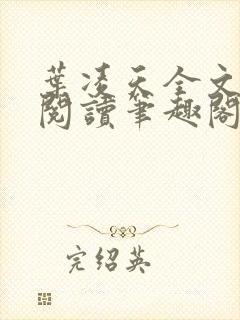 葉凌天全文
閱讀筆趣閣
完绍英